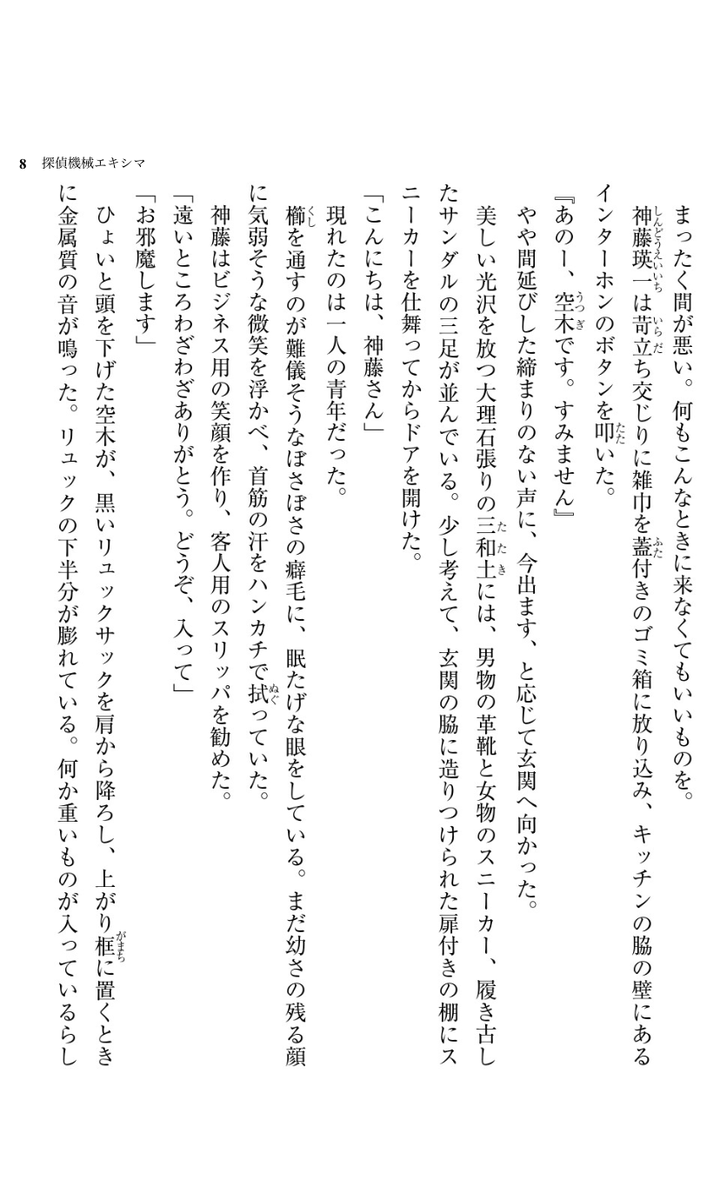 8 探偵機械エキシマ
まったく間が悪い。何もこんなときに来なくてもいいものを。
神藤瑛一は苛立ち交じりに雑巾を蓋付きのゴミ箱に放り込み、キッチンの脇の壁にある
インターホンのボタンを叩いた。
『あのー、空木です。すみません』
やや間延びした締まりのない声に、今出ます、と応じて玄関へ向かった。
美しい光沢を放つ大理石張りの三和土には、男物の革靴と女物のスニーカー、履き古し
たサンダルの三足が並んでいる。少し考えて、玄関の脇に造りつけられた扉付きの棚にス
ニーカーを仕舞ってからドアを開けた。
「こんにちは、神藤さん」
現れたのは一人の青年だった。
櫛を通すのが難儀そうなぼさぼさの癖毛に、眠たげな眼をしている。まだ幼さの残る顔
に気弱そうな微笑を浮かべ、首筋の汗をハンカチで拭っていた。
神藤はビジネス用の笑顔を作り、客人用のスリッパを勧めた。
「遠いところわざわざありがとう。どうぞ、入って」
「お邪魔します」
ひょいと頭を下げた空木が、黒いリュックサックを肩から降ろし、上がり框に置くとき
に金属質の音が鳴った。リュックの下半分が膨れている。何か重いものが入っているらし